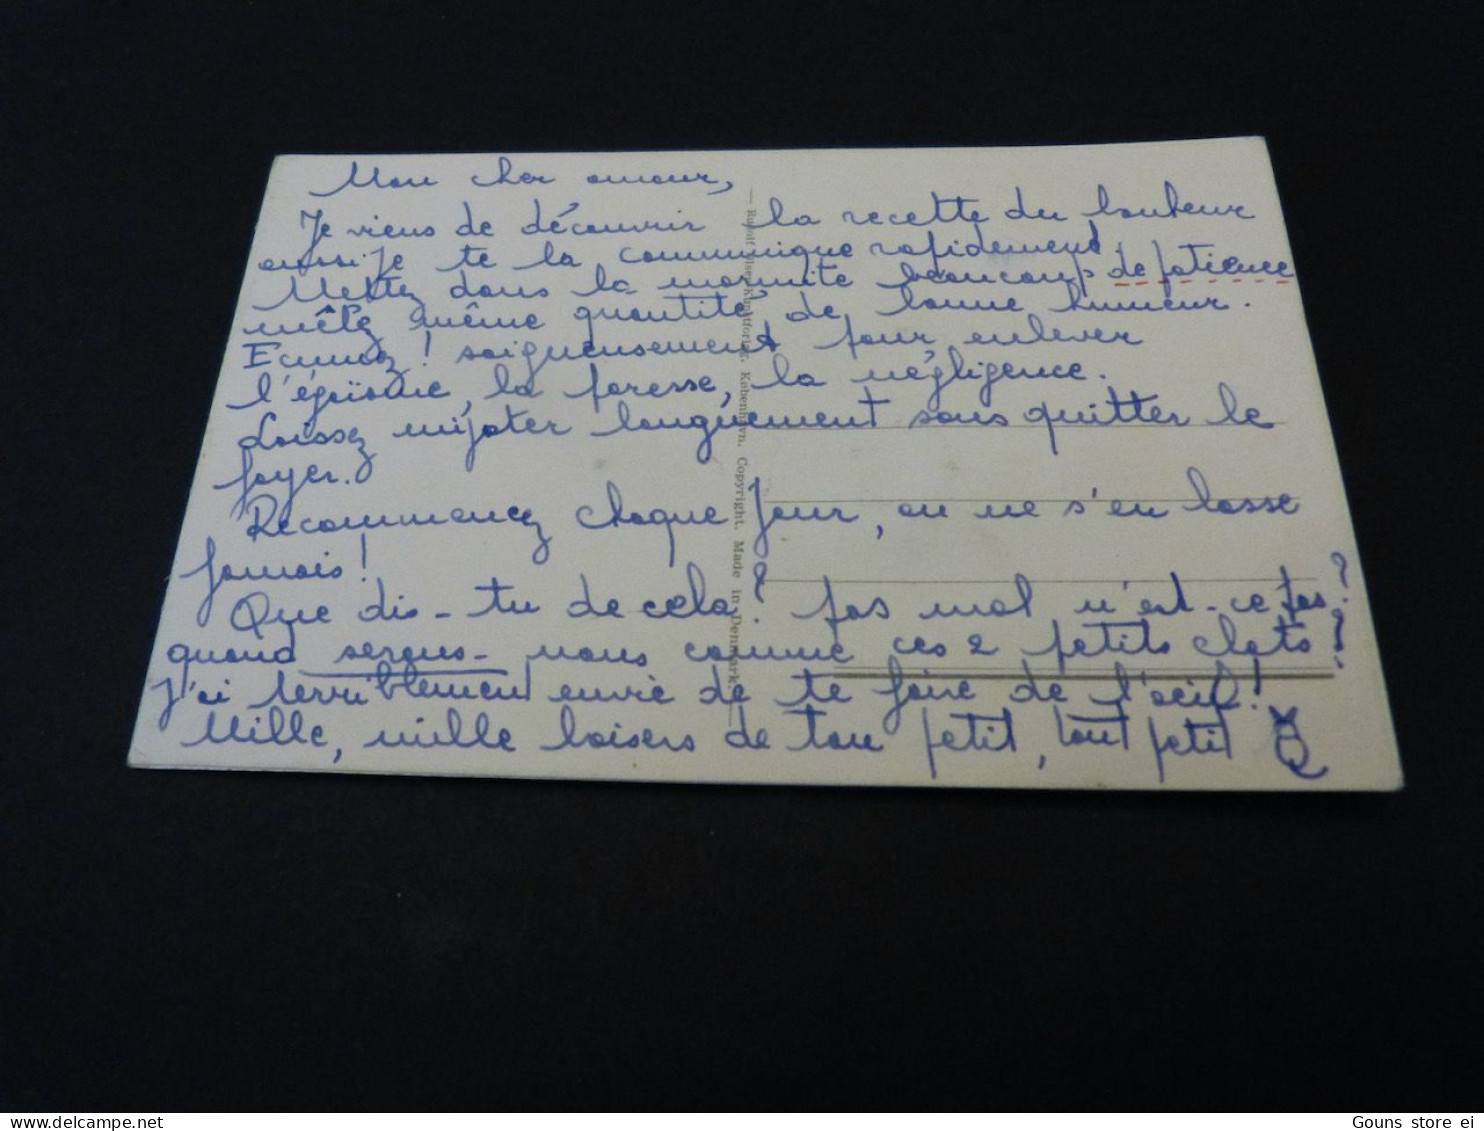 Mon cher amour,
Je viens de découvrir la recette du bonheur
aussi je te la communique rapidement.
Mettez dans la marmite beaucoup de patience
mêlez même quantité de bonne humeur.
Ecumez! soigneusement pour enlever
l'égoïsme, la paresse, la négligence.
Laissez mijoter longuement sans quitter le
foyer.
Recommencez chaque jour, on ne s'en lasse
jamais!
Que dis-tu de cela? pas mal n'est-ce pas?
quand serons-nous comme ces 2 petits chats?
J'ai terriblement envie de te faire de l'oeil!
Mille, mille baisers de ton petit, tout petit
— Rudolf Olsens Kunstforlag. København. Copyright. Made in Denmark —
Gouns store ei